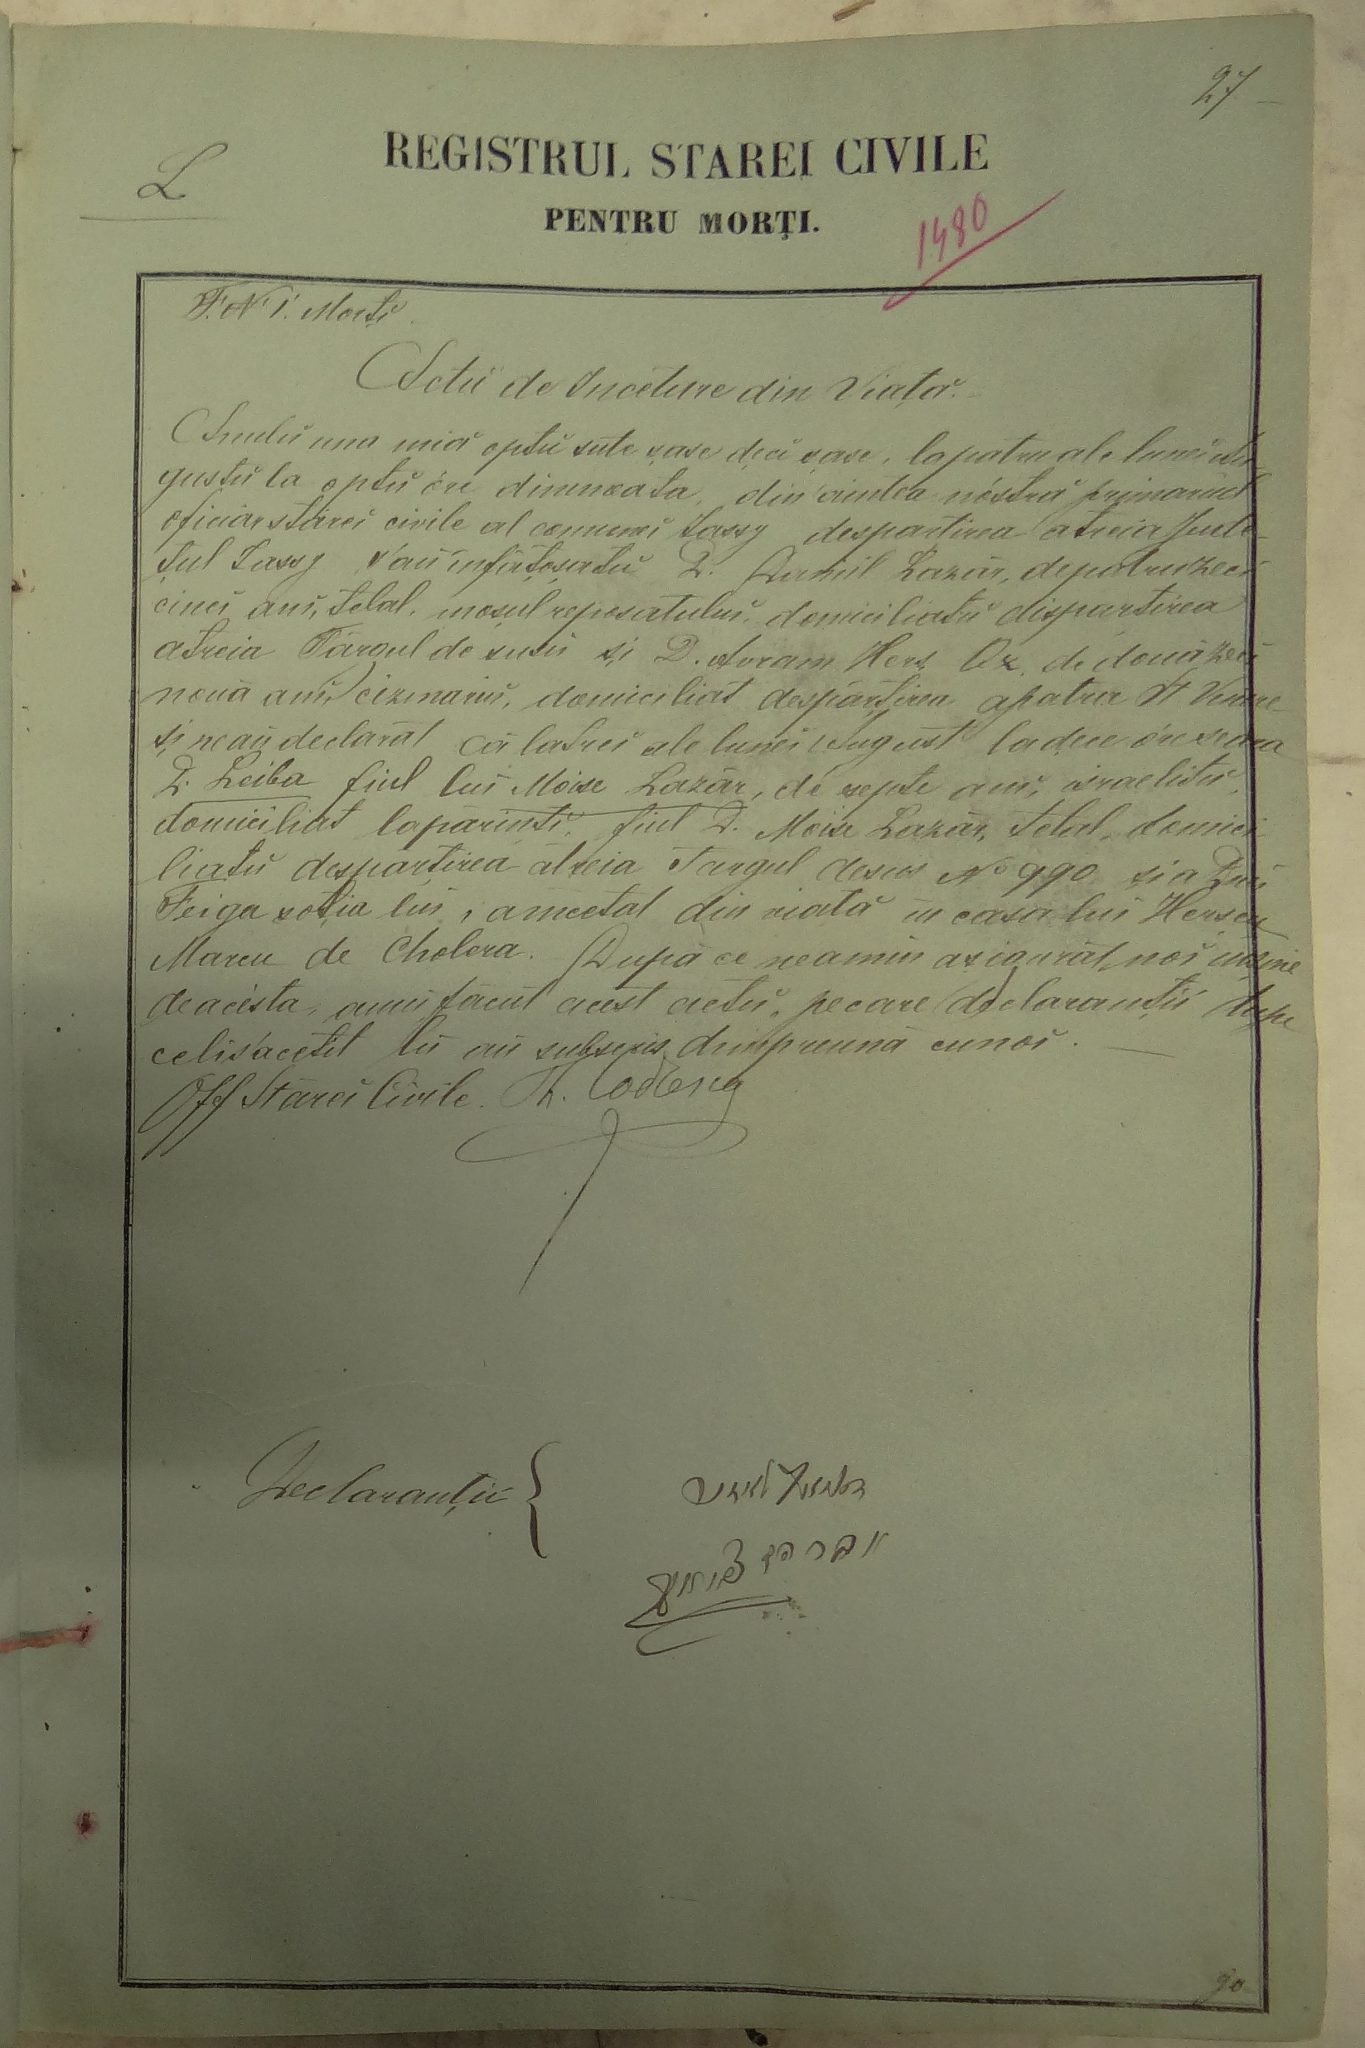 27
L
REGISTRUL STAREI CIVILE
PENTRU MORȚI.
1480
F. No 1. Morți
Actu de Incetare din Viață.
Anulu una mie optu sute șase deci șase, la patru ale lunei Au-
gustu la optu óre dimineața, din aintea nóstră primariul
oficiar stărei civile al comunei Iassy despartirea atreia Jude-
țul Iassy s'au infățoșatu D. Daniil Lazăr, de patru zeci
cinci ani, telal, moșul reposatului, domiciliatu dispartirea
atreia Târgul de susu și D. Avram Herș de două zeci
nouă ani, cizmariu, domiciliat despărțirea apatra St Vinere
și neau declarat că la trei ale lunei August la dece óre seara
D. Leiba fiul lui Moise Lazăr, de septe ani, israelitu,
domiciliat la părinți, fiul D. Moise Lazăr, telal, domici-
liatu despartirea atreia Targul desus No 990 și a
Feiga soția lui, a incetat din viată in casa lui Herscu
Marcu de Cholera. După ce neamu asigurat noi insine
de acésta, amu făcut acest actu, pe care declaranții dupe
ce li s'a cetit lu au subscris dimpreună cu noi.
Off Stărei Civile.
Declaranții
דאניאל לאזער
אברהם
90